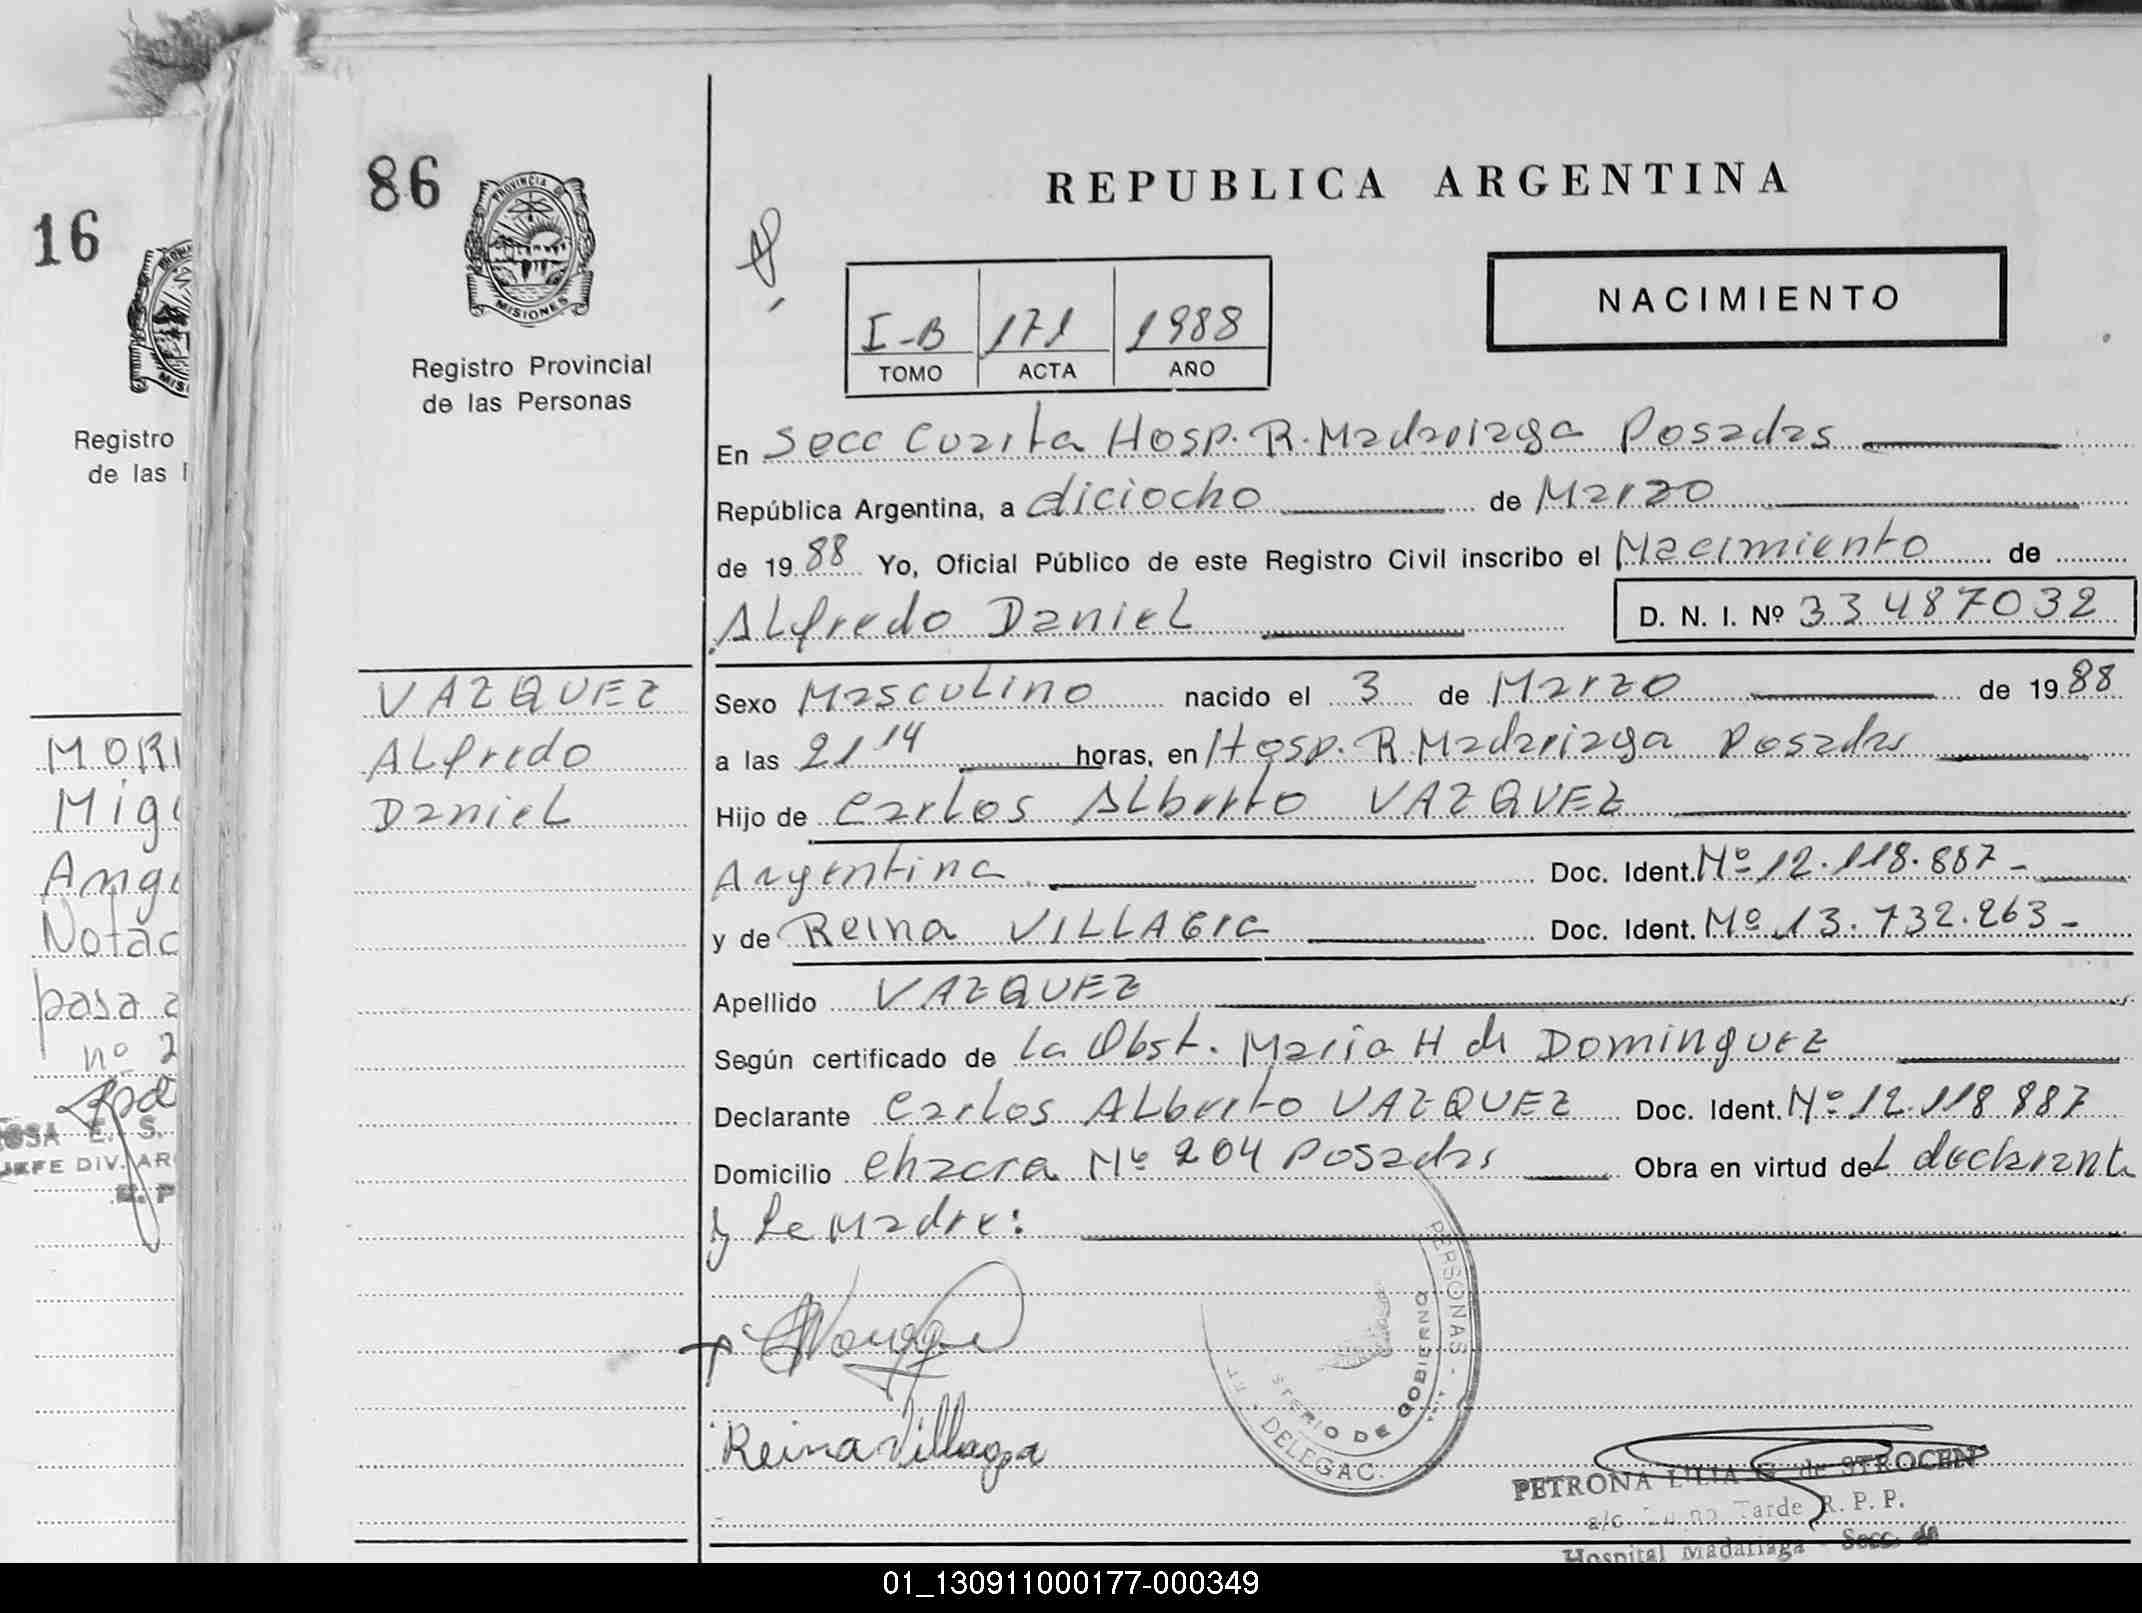 16
Registro
de las
MORI
Migu
Ang
Notac
pasa a
nº 2
OSA E. S.
JEFE DIV. AR
86
PROVINCIA DE
MISIONES
Registro Provincial
de las Personas
VAZQUEZ
ALfredo
DanieL
REPUBLICA ARGENTINA
NACIMIENTO
I-B 171 1988
TOMO ACTA AÑO
En Secc Cuarta Hosp. R. Madariaga Posadas
República Argentina, a diciocho de Marzo
de 1988 Yo, Oficial Público de este Registro Civil inscribo el Nacimiento de
ALfredo DanieL D. N. I. Nº 33487032
Sexo MascuLino nacido el 3 de Marzo de 1988
a las 21 14 horas, en Hosp. R. Madariaga Posadas
Hijo de CarLos ALberto VAZQUEZ
Argentina Doc. Ident. Nº 12.118.887 -
y de Reina VILLAGRA Doc. Ident. Nº 13.732.263 -
Apellido VAZQUEZ
Según certificado de La Obst. Maria H de DominguEZ
Declarante CarLos ALberto VAZQUEZ Doc. Ident. Nº 12.118 887
Domicilio Chacra Nº 204 Posadas Obra en virtud deL declarante
y La Madre:
Reina Villagra
PERSONAS
STERIO DE GOBIERNO
DELEGAC.
PETRONA LILIA G. de STROCEN
a/c Tarde R. P. P.
Hospital Madariaga - Secc.
01_130911000177-000349